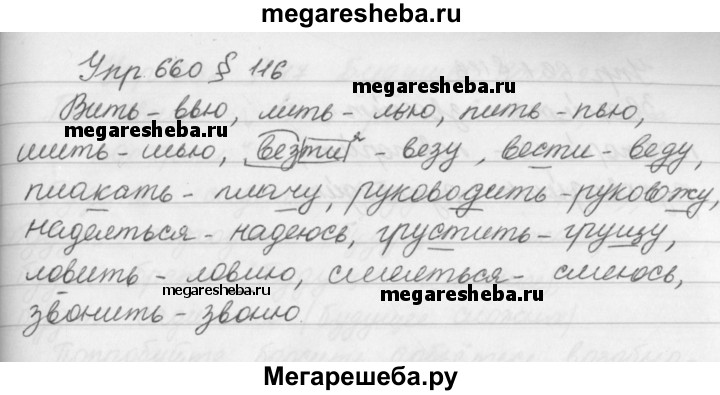 megaresheba.ru
Упр. 660 § 116
megaresheba.ru
Вить – вью, лить – лью, пить – пью,
megaresheba.ru
шить – шью, везти² – везу, вести – веду,
плакать – плачу, руководить – руковожу,
надеяться – надеюсь, грустить – грущу,
ловить – ловлю, смеяться – смеюсь,
megaresheba.ru
megaresheba.ru
звонить – звоню.
Мегарешеба.ру